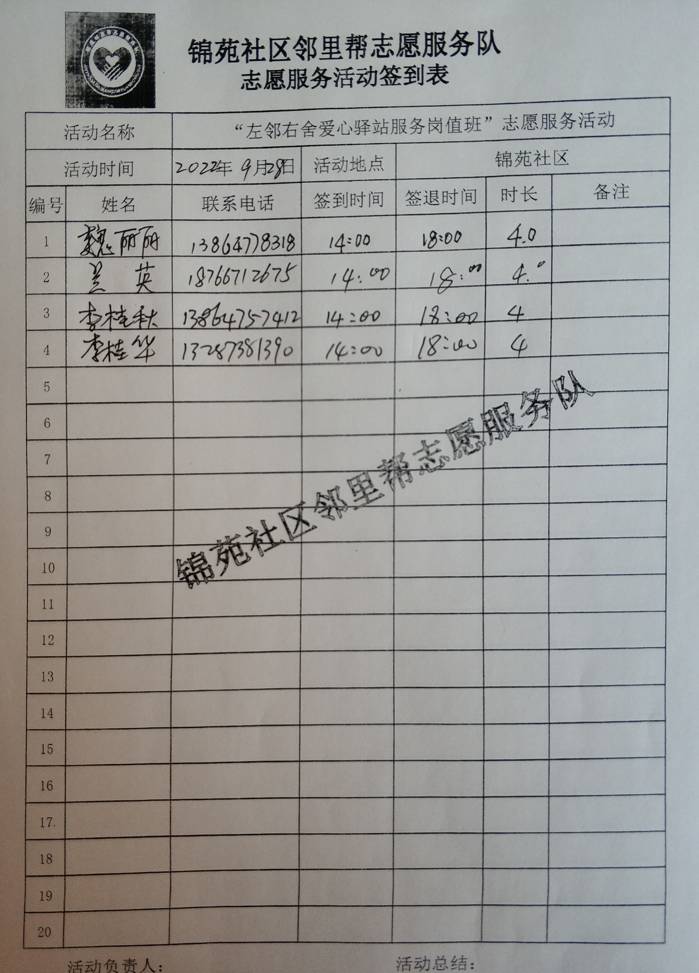 锦苑社区邻里帮志愿服务队
志愿服务活动签到表
活动名称 “左邻右舍爱心驿站服务岗值班”志愿服务活动
活动时间 2022年 9月28日 活动地点 锦苑社区
编号 姓名 联系电话 签到时间 签退时间 时长 备注
1 魏丽丽 13864778318 14:00 18:00 4.0
2 兰英 18766712675 14:00 18:00 4.0
3 李桂秋 13864757412 14:00 18:00 4
4 李桂华 13287381390 14:00 18:00 4
5
6
7
8
9
10
11
12
13
14
15
16
17
18
19
20
锦苑社区邻里帮志愿服务队
活动负责人： 活动总结：